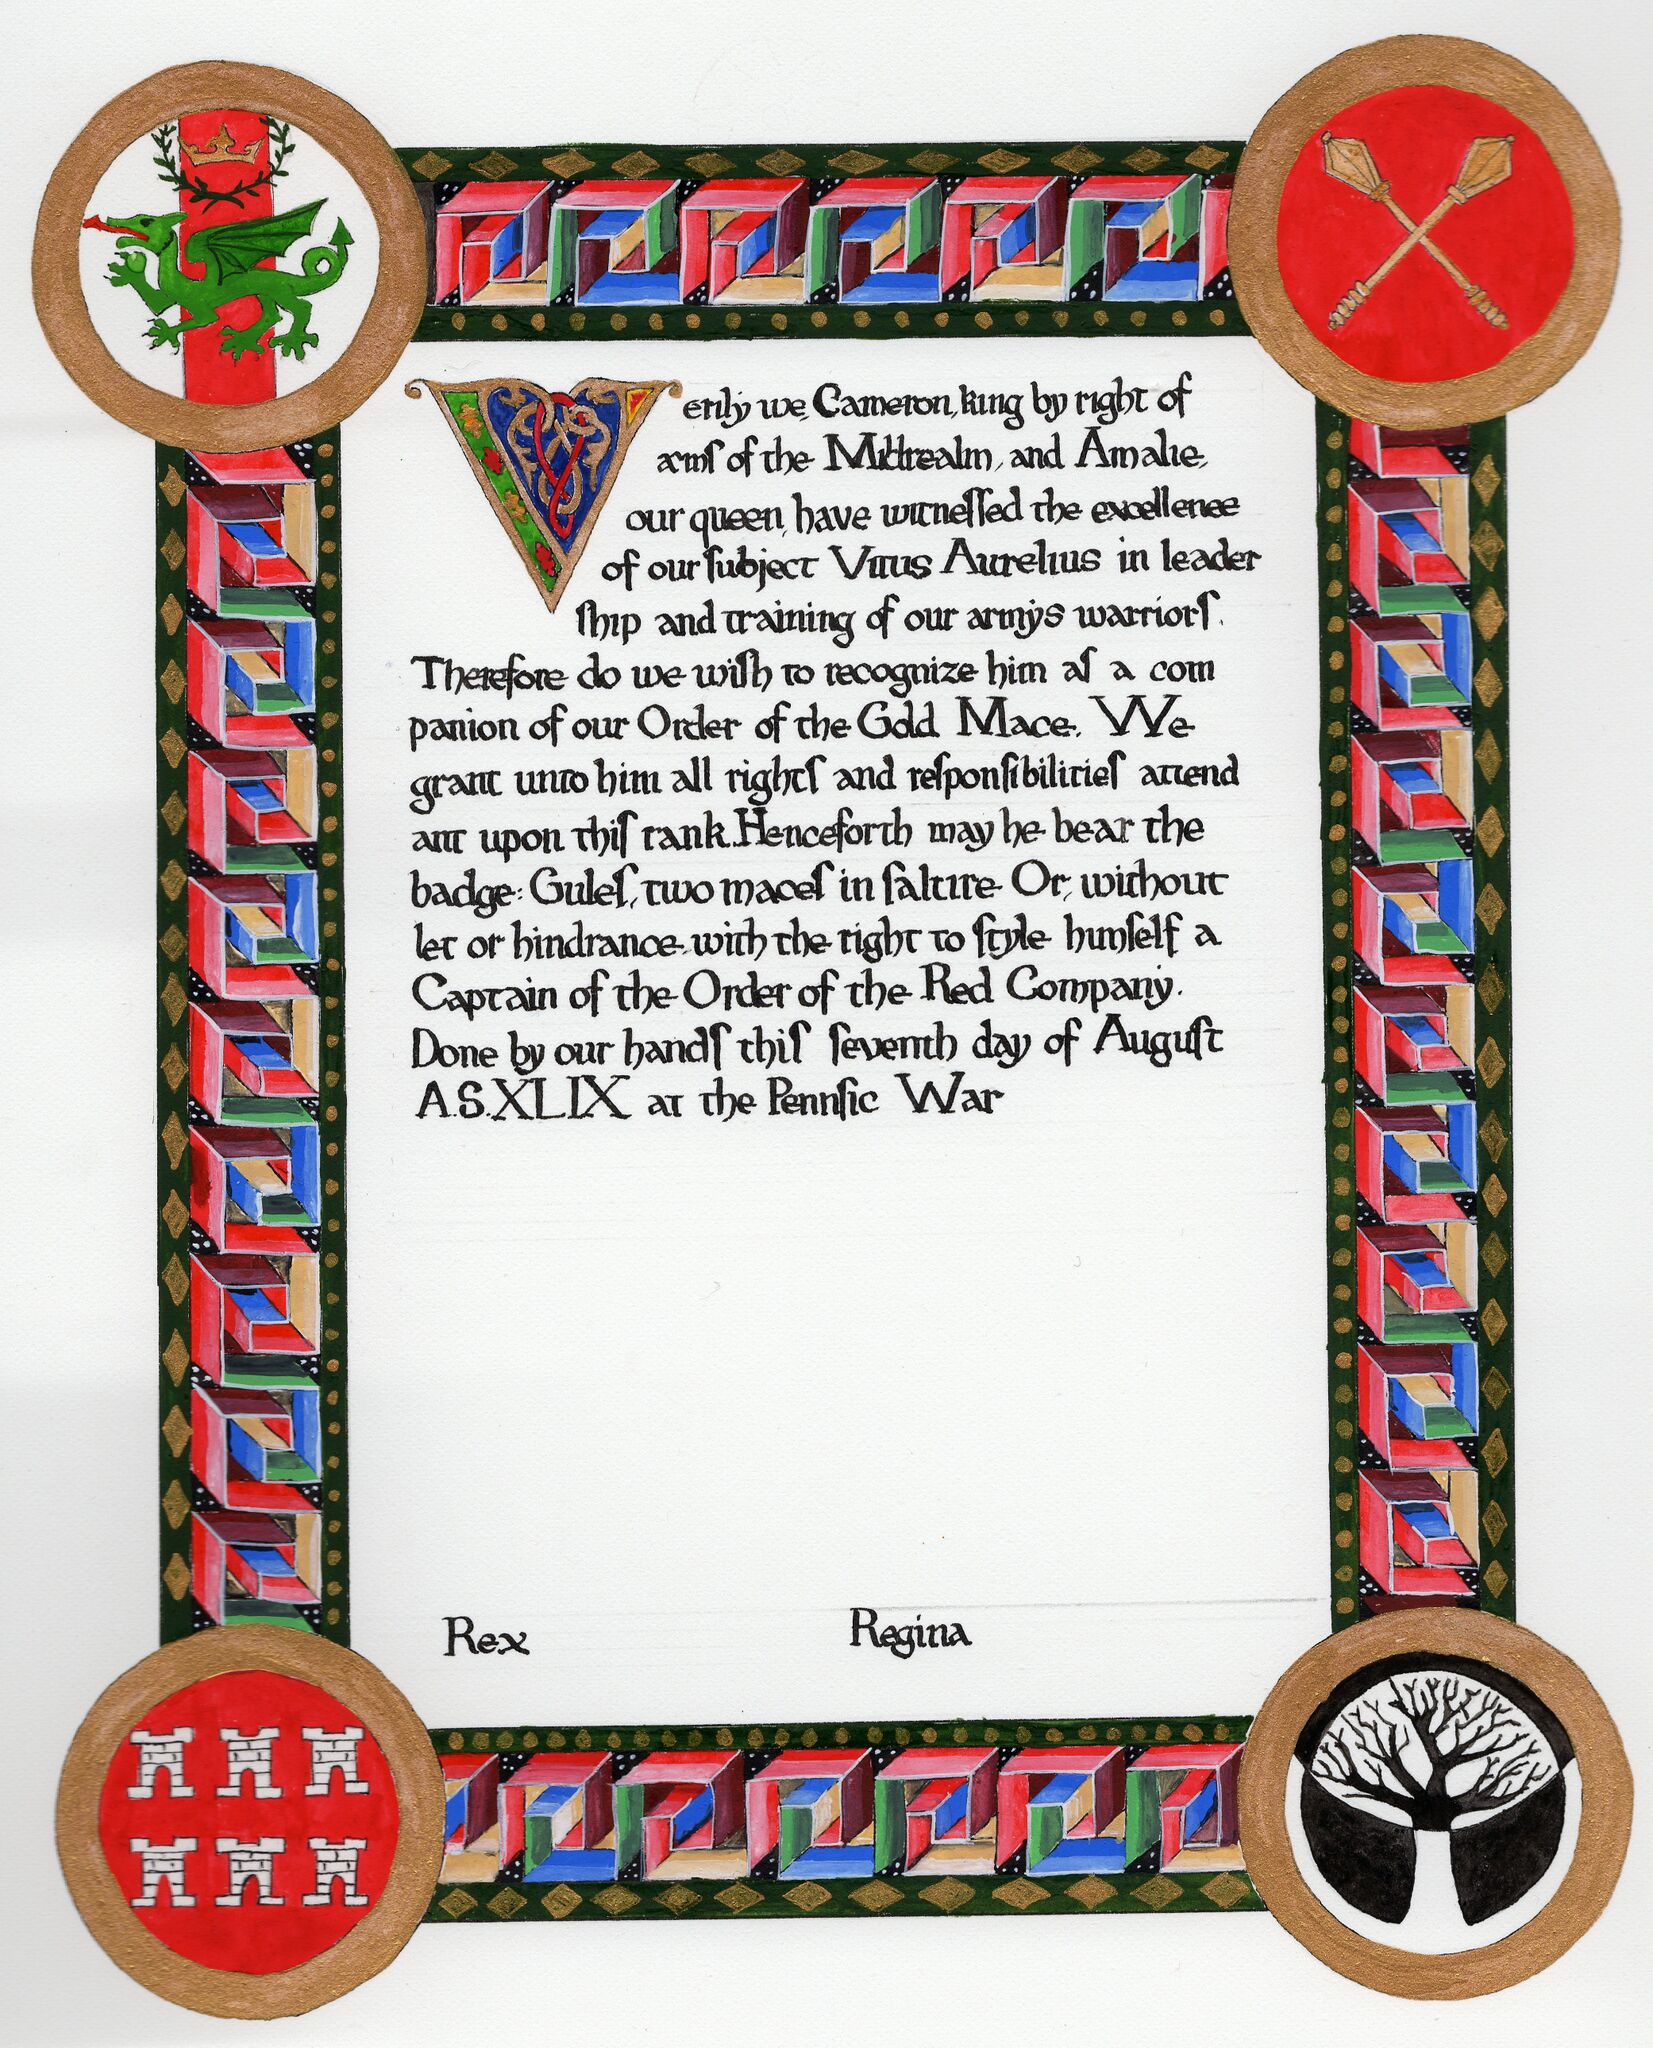 Verily we, Cameron, king by right of
arms of the Midrealm, and Amalie,
our queen, have witnessed the excellence
of our subject Vitus Aurelius in leader
ship and training of our armys warriors.
Therefore do we wish to recognize him as a com
panion of our Order of the Gold Mace. We
grant unto him all rights and responsibilities attend
ant upon this rank. Henceforth may he bear the
badge: Gules, two maces in saltire Or, without
let or hindrance with the right to style himself a
Captain of the Order of the Red Company.
Done by our hands this seventh day of August
A.S. XLIX at the Pennsic War
Rex Regina